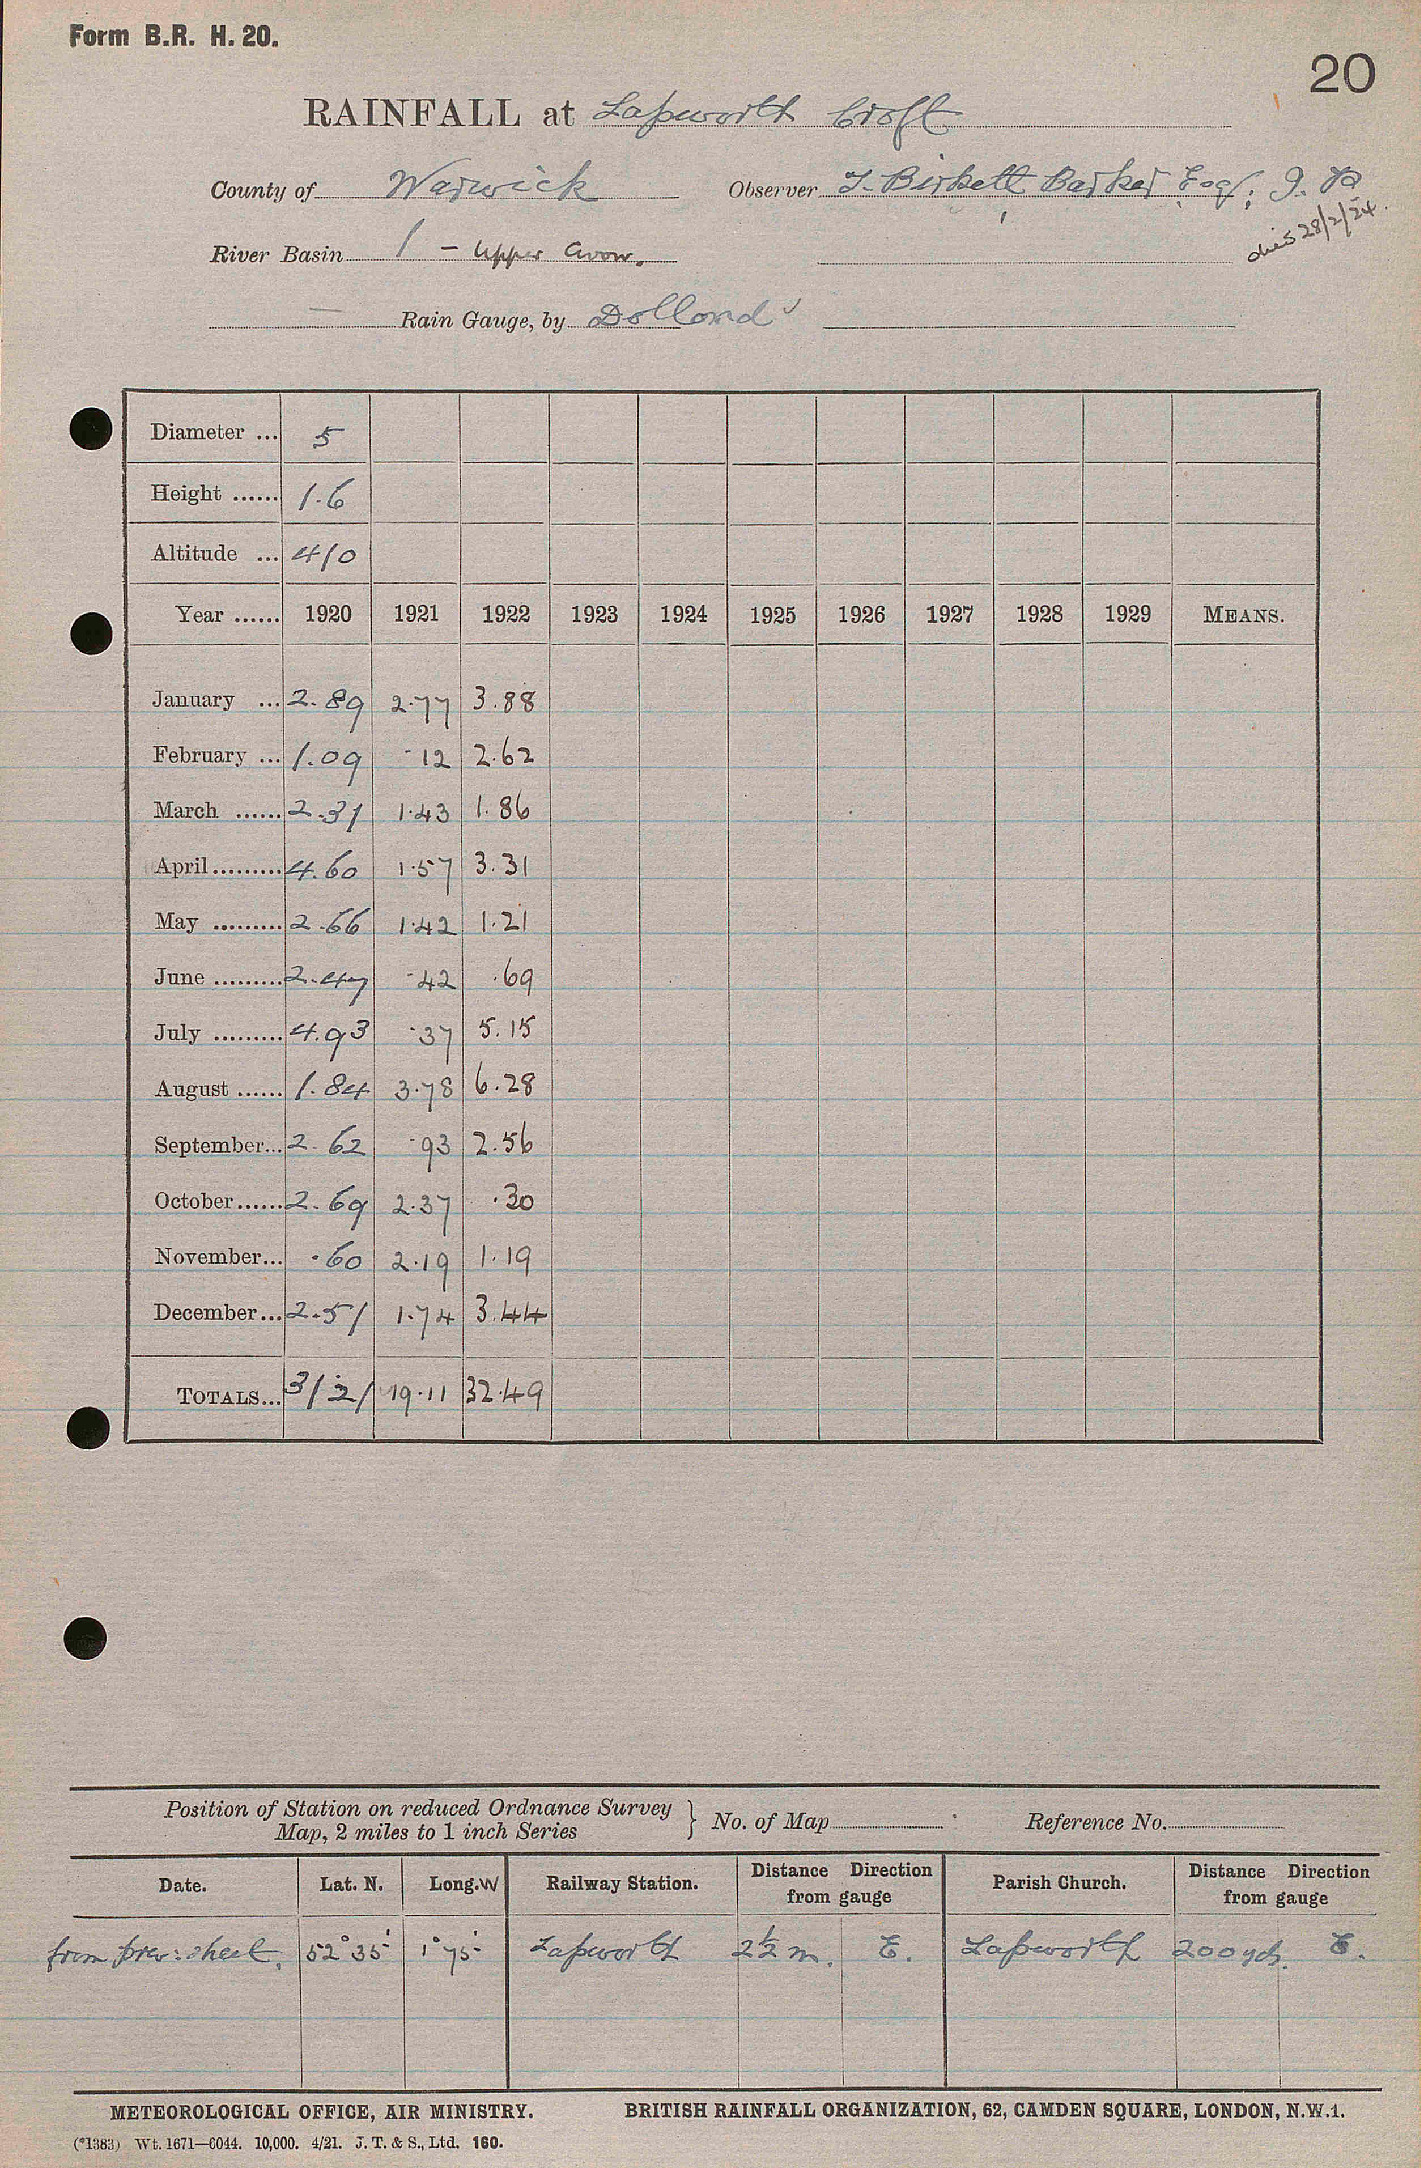 Form B.R. H. 20.
20
RAINFALL at Lapworth Croft
County of Warwick Observer T. Birkett Barker Esq., J. P.
died 28/2/24.
River Basin 1 - Upper Avon.
Rain Gauge, by Dollond
Diameter ... 5
Height ...... 1.6
Altitude ... 410
Year ...... 1920 1921 1922 1923 1924 1925 1926 1927 1928 1929 MEANS.
January ... 2.89 2.77 3.88
February ... 1.09 .12 2.62
March ...... 2.31 1.43 1.86
April......... 4.60 1.57 3.31
May ......... 2.66 1.42 1.21
June ......... 2.47 .42 .69
July ......... 4.93 .37 5.15
August ...... 1.84 3.78 6.28
September... 2.62 .93 2.56
October...... 2.69 2.37 .30
November... .60 2.19 1.19
December... 2.51 1.74 3.44
TOTALS... 31.21 19.11 32.49
Position of Station on reduced Ordnance Survey
Map, 2 miles to 1 inch Series } No. of Map Reference No.
Date. Lat. N. Long. W Railway Station. Distance Direction from gauge Parish Church. Distance Direction from gauge
from prev: sheet. 52° 35' 1° 75' Lapworth 2½ m. E. Lapworth 200 yds. E.
METEOROLOGICAL OFFICE, AIR MINISTRY. BRITISH RAINFALL ORGANIZATION, 62, CAMDEN SQUARE, LONDON, N.W.1.
(*1383) Wt. 1671—6044. 10,000. 4/21. J. T. & S., Ltd. 160.